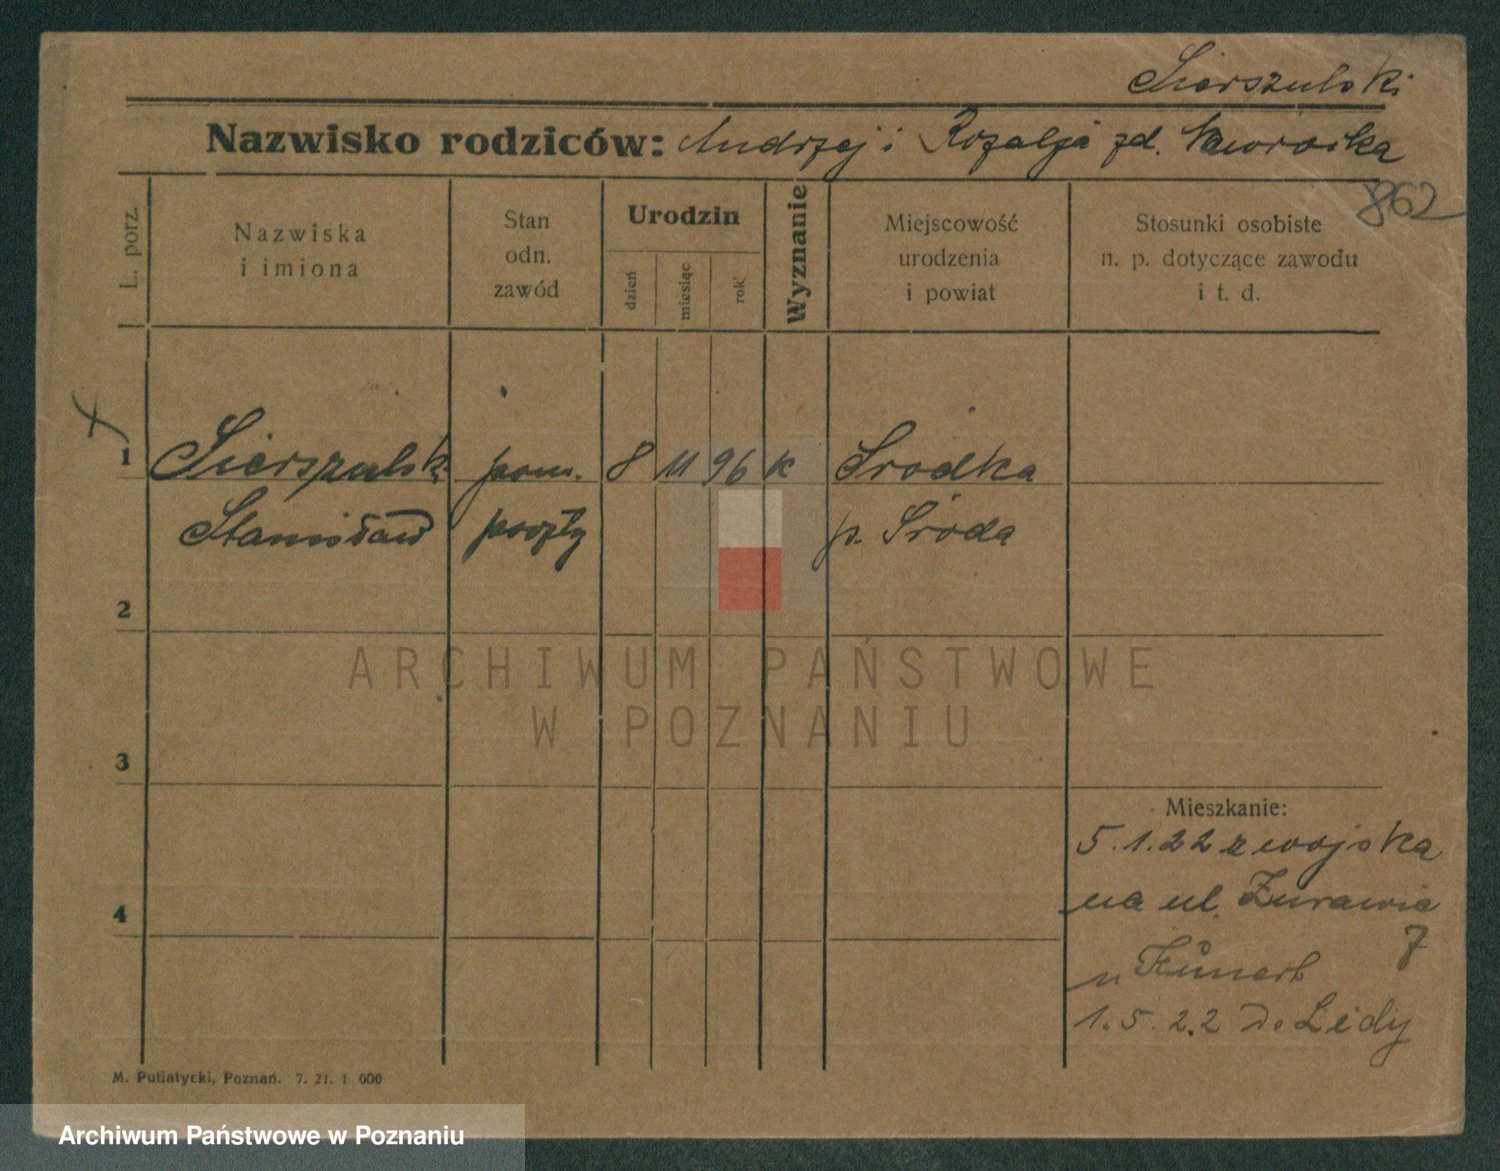 Sierszulski
Nazwisko rodziców: Andrzej i Rozalja zd. Nawrocka
862
L. porz.
Nazwiska
i imiona
Stan
odn.
zawód
Urodzin
dzień
miesiąc
rok
Wyznanie
Miejscowość
urodzenia
i powiat
Stosunki osobiste
n. p. dotyczące zawodu
i t. d.
1 Sierszulski pom. 8 11 96 k Srodka
Stanisław poczty p. Sroda
2
3
4
Mieszkanie:
5.1.22 z wojska
na ul. Zurawia
7
u Künert
1.5.22 do Lidy
M. Putiatycki, Poznań. 7. 21. 1 000
ARCHIWUM PAŃSTWOWE
W POZNANIU
Archiwum Państwowe w Poznaniu